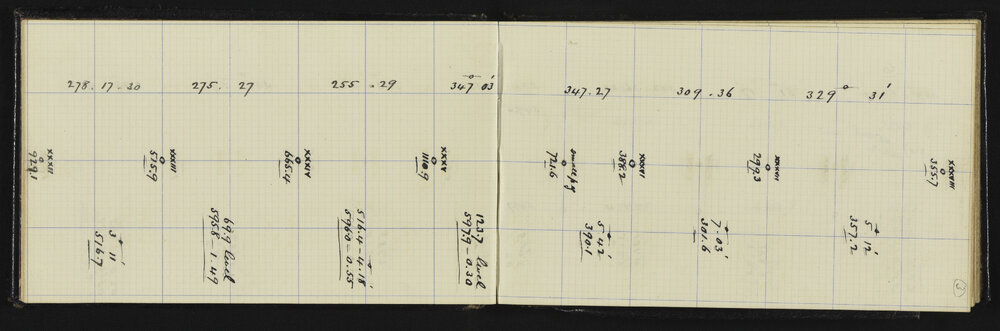 278. 17. 30
275. 27
255. 29
347° 03'
347. 27
309. 36
329° 31'
XXXII
929.1
XXXIII
575.9
XXXIV
665.4
XXXV
1110.9
721.6
XXXVI
388.2
XXXVII
299.3
XXXVIII
355.7
+
3° 11'
516.7
69.9 level
595.8 - 1.49
516.4 - 4.18'
596.0 - 0.55
123.7 level
597.9 - 0.30
+
5° 42'
390.1
+
7. 03'
301.6
+
5° 12'
357.2